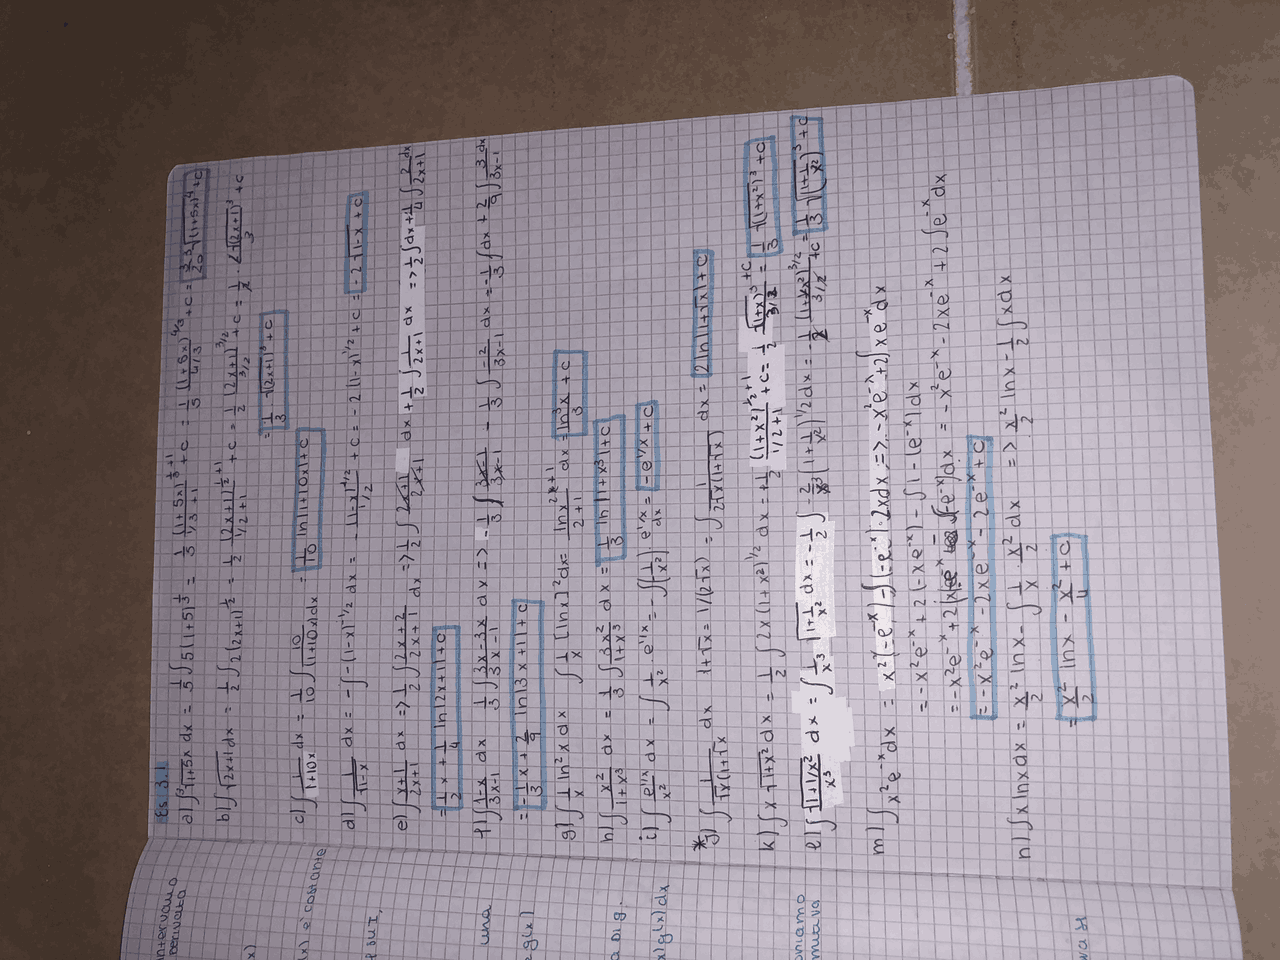 Es. 3.1
a) ∫ ∛(1+5x) dx = 1/5 ∫ 5(1+5)^(1/3) = 1/5 (1+5x)^(1/3+1)/(1/3+1) + c = 1/5 (1+5x)^(4/3)/(4/3) + c = 3/20 ∛(1+5x)^4 + c
b) ∫ √(2x+1) dx = 1/2 ∫ 2(2x+1)^(1/2) = 1/2 (2x+1)^(1/2+1)/(1/2+1) + c = 1/2 (2x+1)^(3/2)/(3/2) + c = 1/2 · 2 √(2x+1)^3/3 + c
= 1/3 √(2x+1)^3 + c
c) ∫ 1/(1+10x) dx = 1/10 ∫ 10/(1+10x) dx = 1/10 ln|1+10x| + c
d) ∫ 1/√(1-x) dx = -∫ -(1-x)^(-1/2) dx = -(1-x)^(1/2)/(1/2) + c = -2(1-x)^(1/2) + c = -2√(1-x) + c
e) ∫ (x+1)/(2x+1) dx => 1/2 ∫ (2x+2)/(2x+1) dx => 1/2 ∫ (2x+1)/(2x+1) dx + 1/2 ∫ 1/(2x+1) dx => 1/2 ∫ dx + 1/4 ∫ 2/(2x+1) dx
= 1/2 x + 1/4 ln|2x+1| + c
f) ∫ (1-x)/(3x-1) dx 1/3 ∫ (3x-3x)/(3x-1) dx => -1/3 ∫ (3x-1)/(3x-1) - 1/3 ∫ -2/(3x-1) dx = -1/3 ∫ dx + 2/9 ∫ 3/(3x-1) dx
= -1/3 x + 2/9 ln|3x+1| + c
g) ∫ 1/x ln² x dx ∫ 1/x [ln x]² dx = ln x^(2+1)/(2+1) dx = ln³x/3 + c
h) ∫ x²/(1+x³) dx = 1/3 ∫ 3x²/(1+x³) dx = 1/3 ln|1+x³| + c
i) ∫ e^(1/x)/x² dx = ∫ 1/x² · e^(1/x) = -∫(-1/x²) e^(1/x) dx = -e^(1/x) + c
* j) ∫ 1/(√x(1+√x)) dx 1+√x = 1/(2√x) = ∫ 1/(2√x(1+√x)) dx = 2 ln|1+√x| + c
k) ∫ x √(1+x²) dx = 1/2 ∫ 2x(1+x²)^(1/2) dx = +1/2 (1+x²)^(1/2+1)/(1/2+1) + c = 1/2 √(1+x)^3/(3/2) + c = 1/3 √(1+x²)^3 + c
l) ∫ √(1+1/x²)/x³ dx = ∫ 1/x³ √(1+1/x²) dx = -1/2 ∫ -2/x³ (1+1/x²)^1/2 dx = -1/2 (1+x²)^(3/2)/(3/2) + c = 1/3 √(1+1/x²)^3 + c
m) ∫ x² e^-x dx = x²(-e^-x) - ∫(-e^-x)·2x dx => -x²e^-x + 2∫ xe^-x dx
= -x²e^-x + 2(-xe^-x) - ∫ 1-(e^-x) dx
= -x²e^-x + 2(xe^-x - ∫-e^-x) dx = -x²e^-x - 2xe^-x + 2∫e^-x dx
= -x²e^-x - 2xe^-x - 2e^-x + c
n) ∫ x ln x dx = x²/2 ln x - ∫ 1/x · x²/2 dx => x²/2 ln x - 1/2 ∫ x dx
= x²/2 ln x - x²/4 + c
intervallo
derivata
x)
(x) è costante
una
g(x)
x)g(x) dx